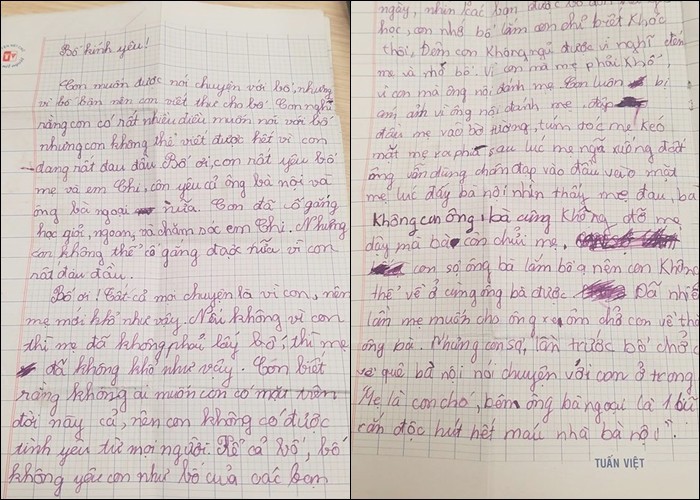 Bố kính yêu!
Con muốn được nói chuyện với bố, nhưng
vì bố bận nên con viết thư cho bố. Con nghĩ
rằng con có rất nhiều điều muốn nói với bố
nhưng con không thể viết được hết vì con
đang rất đau đầu. Bố ơi, con rất yêu bố
mẹ và em Chi, con yêu cả ông bà nội và
ông bà ngoại nữa. Con đã cố gắng
học giỏi, ngoan, và chăm sóc em Chi. Nhưng
con không thể cố gắng được nữa vì con
rất đau đầu.
Bố ơi! Tất cả mọi chuyện là vì con, nên
mẹ mới khổ như vậy. Nếu không vì con
thì mẹ đã không phải lấy bố, thì mẹ
đã không khổ như vậy. Con biết
rằng không ai muốn con có mặt trên
đời này cả, nên con không có được
tình yêu từ mọi người. Kể cả bố, bố
không yêu con như bố của các bạn
ngày, nhìn các bạn được bố
học, con nhớ bố lắm con chỉ biết khóc
thôi. Đêm con không ngủ được vì nghĩ đến
mẹ và nhớ bố. Vì con mà mẹ phải khổ
vì con mà ông nội đánh mẹ. Con luôn bị
ám ảnh vì ông nội đánh mẹ, đập
đầu mẹ vào bờ tường, túm tóc mẹ kéo
mặt mẹ ra phía sau lúc mẹ ngã xuống đất
ông vẫn dùng chân đạp vào đầu vào mặt
mẹ, lúc đấy bà nội nhìn thấy mẹ đau, bà
không can ông, bà cũng không đỡ mẹ
dậy mà bà còn chửi mẹ,
con sợ ông bà lắm bố ạ, nên con không
thể về ở cùng ông bà được. Đã nhiều
lần mẹ muốn cho ông chở con về
ông bà. Nhưng con sợ, lần trước bố chở
về quê bà nội nói chuyện với con ở trong
"Mẹ là con chó, bên ông bà ngoại là 1 lũ
cắn độc hút hết máu nhà bà nội".
TUẤN VIỆT